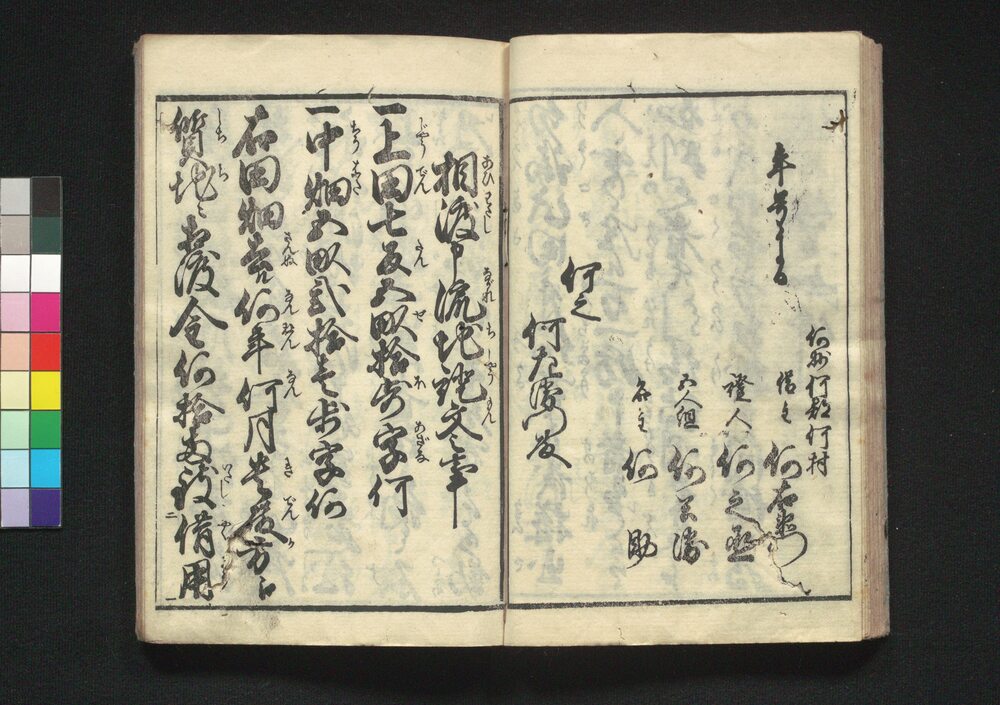 年号月日
何州何郡何村
借主 何右衛門
證人 何之丞
五人組 何兵衛
名主 何助
何之
何左衛門殿
相渡申流地證文之事
一上田七反五畝拾歩字何
一中畑五畝弐拾壱歩字何
右田畑去何年何月貴殿方江
質地ニ相渡金何拾両致借用